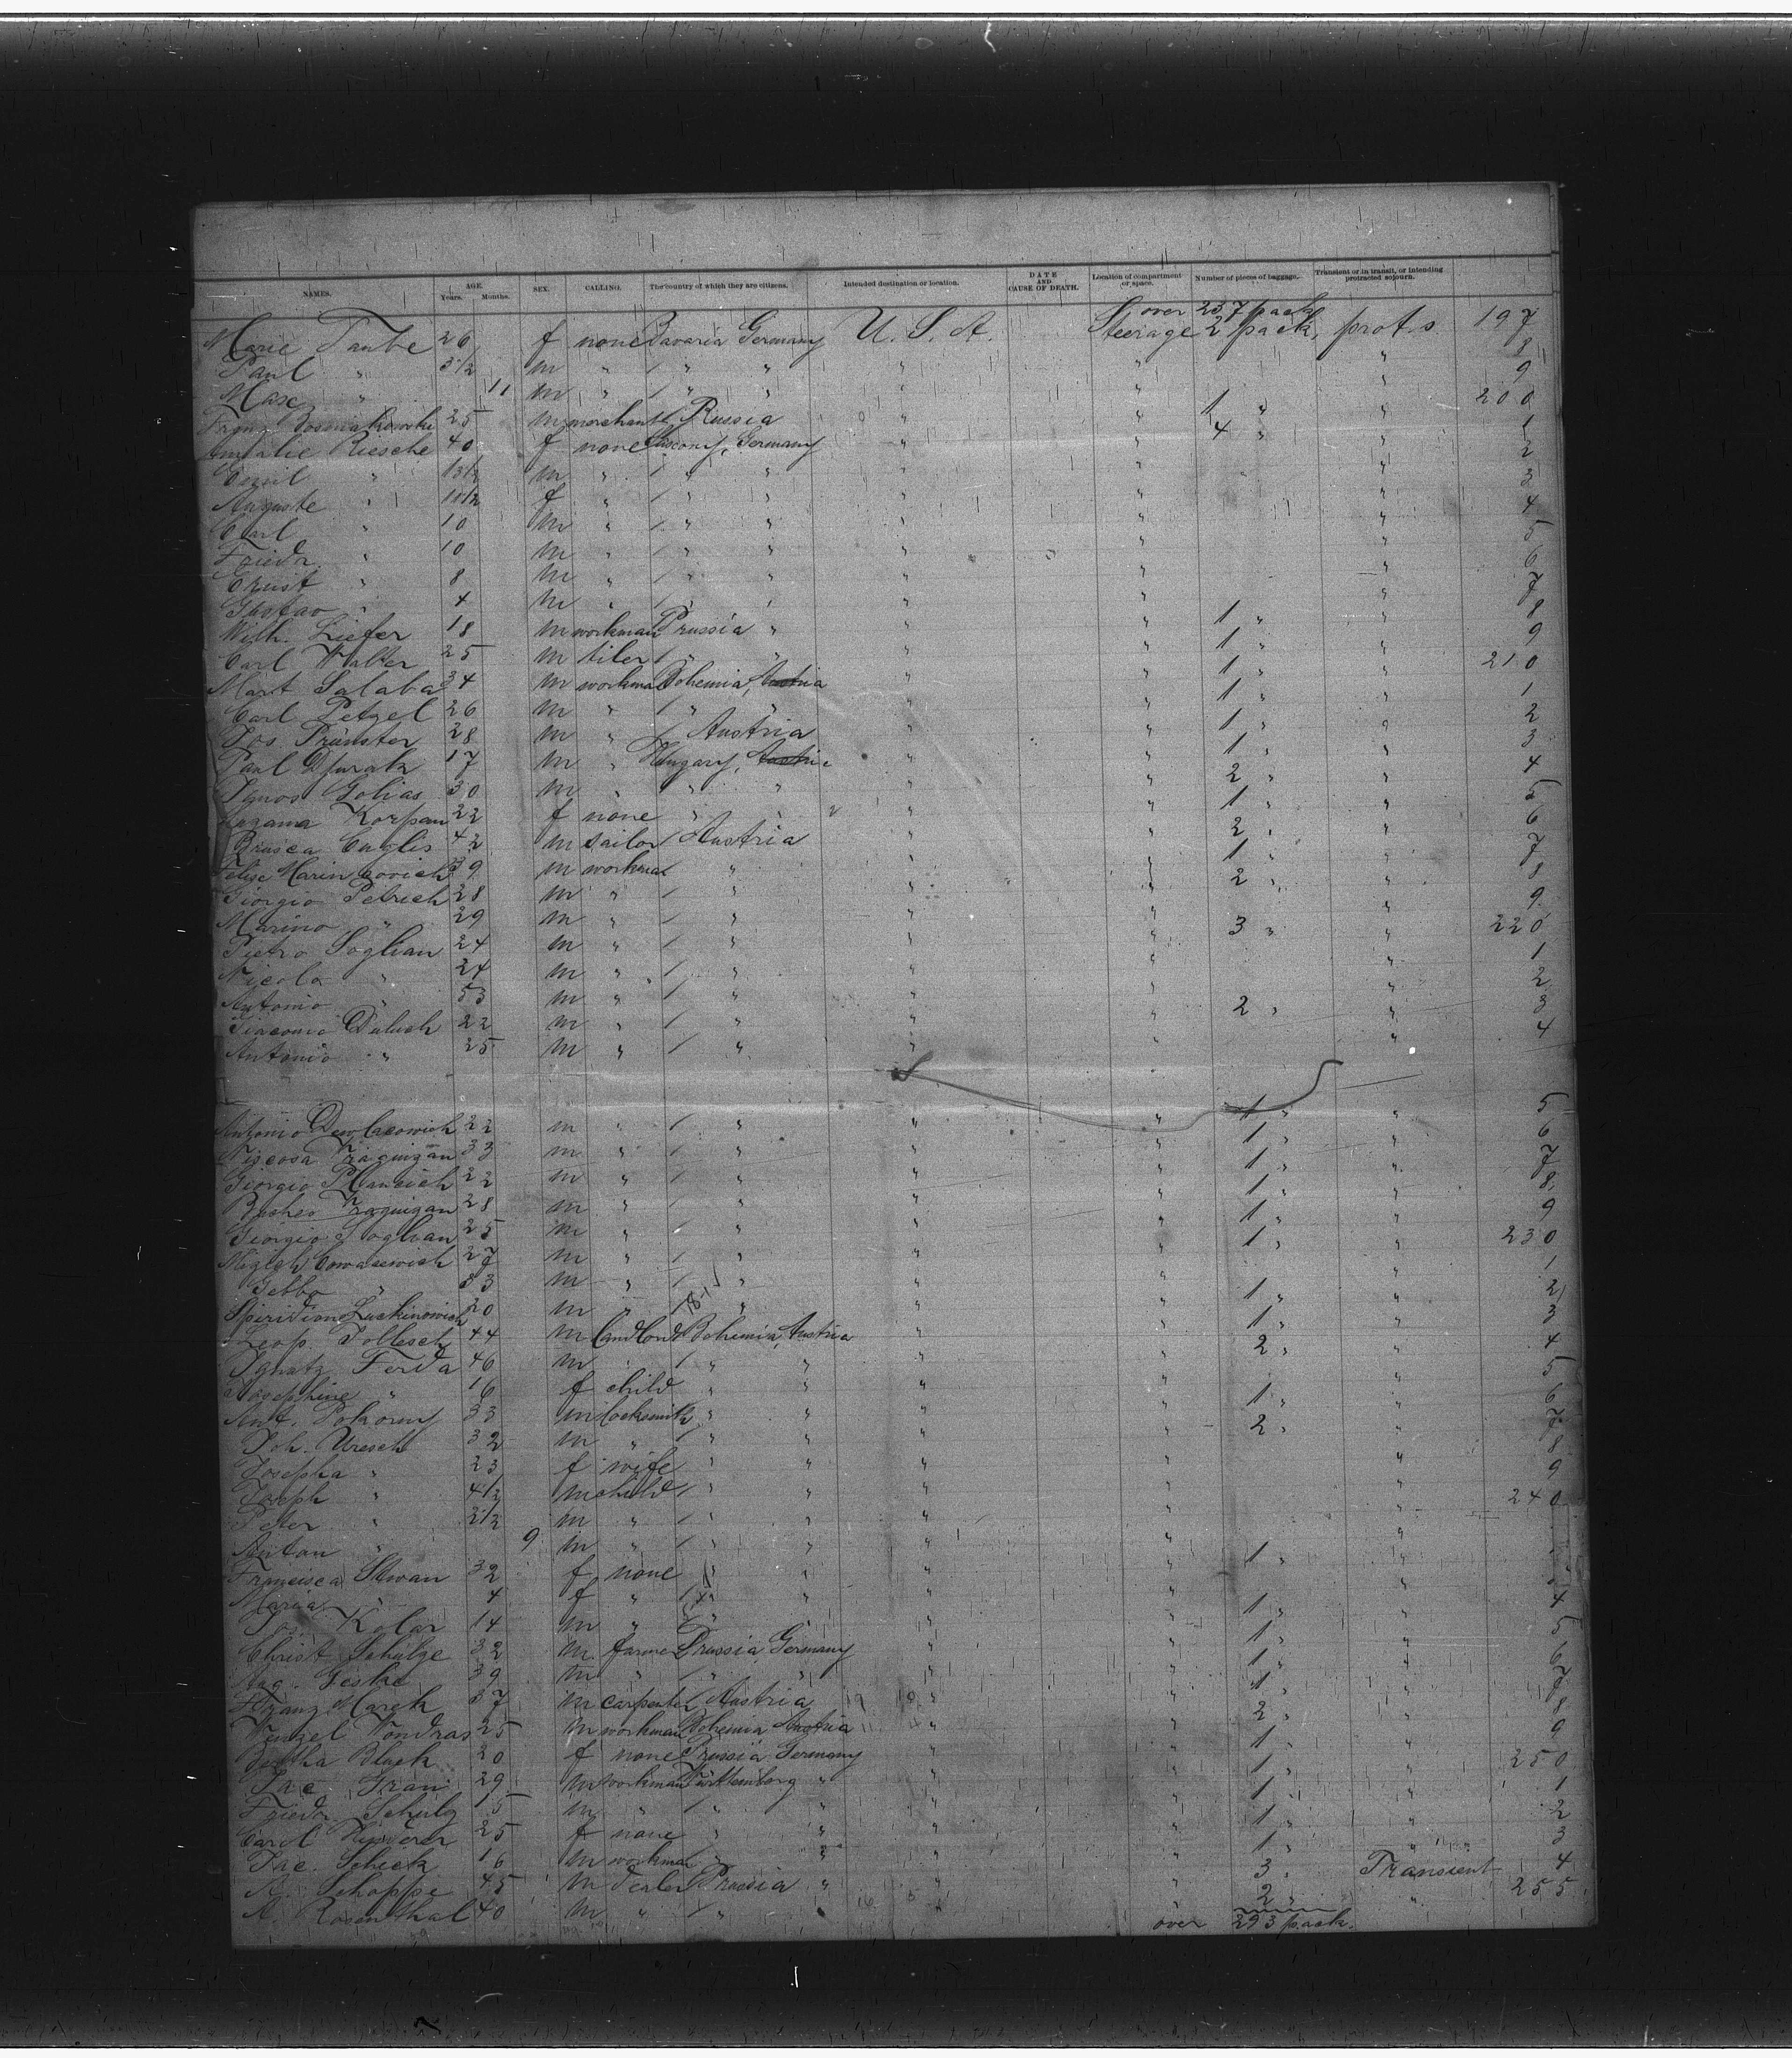 NAMES. AGE Years. Months. SEX. CALLING. The country of which they are citizens. Intended destination or location. DATE AND CAUSE OF DEATH. Location of compartment or space. Number of pieces of baggage. Transient or in transit, or intending protracted sojourn.
over 237 pack
Marie Taube 26 f none Bavaria Germany U. S. A. Steerage 2 pack, prot. s. 197
Paul " 3 1/2 m " / " " " " " 8
Max " 11 m " / " " " " " 9
Franz 25 m merchant / Russia " " 1 " " 200
Amalie Riesche 40 f none Saxony, Germany " " 4 " " 1
Emil " 13 1/2 m " / " " " " " 2
Auguste " 10 1/2 f " / " " " " " 3
Carl " 10 m " / " " " " " 4
Friedr. " 10 m " / " " " " " 5
Ernst " 8 m " / " " " " " 6
Gustav " 4 m " / " " " " " 7
Wilh. Liefer 18 m workman Prussia " " " 1 " " 8
Carl Walter 25 m tiler / " " " " 1 " " 9
Mart Salaba 34 m workman Bohemia, Austria " " 1 " " 210
Carl Petzel 26 m " / " " " " 1 " " 1
Jos. Prünster 28 m " / Austria " " 1 " " 2
Paul 17 m " Hungary, Austria " " 1 " " 3
Ignos Golias 30 m " " " " " 2 " " 4
Korpan 22 f none " " " " 1 " " 5
42 m sailor / Austria " " 2 " " 6
39 m workman " " " 1 " " 7
Giorgio Petrich 28 m " / " " " 2 " " 8
Marino " 29 m " / " " " " 9
Pietro Soglian 24 m " / " " " 3 " " 220
Nicola " 24 m " / " " " " 1
Antonio " 53 m " / " " " " 2
Giacomo Duluch 22 m " / " " " 2 " " 3
Antonio " 25 m " / " " " " 4
Antonio 22 m " / " " " 1 " " 5
33 m " / " " " 1 " " 6
Giorgio 22 m " / " " " 1 " " 7
28 m " / " " " 1 " " 8
Giorgio Soglian 25 m " / " " " 1 " " 9
27 m " / " " " 1 " " 230
" 33 m " / " " " " 1
Spiridione 20 m " " " " 1 " " 2
Leop. Pollesch 44 m landlord Bohemia, Austria " " 1 " " 3
Ignatz Ferda 46 m " / " " " " 2 " " 4
Josephine " 16 f child " " " " " 5
Ant. Pokorny 33 m locksmith " " " " 1 " " 6
Joh. Uresch 32 m " / " " " " 2 " " 7
Josepha " 23 f wife " " " " " 8
Joseph " 4 1/2 m child / " " " " " 9
Peter " 2 1/2 m " / " " " " " 240
Anton " 9 m " / " " " " "
Francisca 32 f none " " " " 1 " "
Maria " 4 f " / " " " " "
Jos. Kolar 14 m " " " " " 1 " " 4
Christ Schulze 32 m farmer Prussia Germany " " 1 " " 5
Aug. Feske 39 m " / " " " " 1 " " 6
Franz Marek 37 m carpenter / Austria " " 1 " " 7
Wenzel Vondras 25 m workman Bohemia Austria " " 2 " " 8
Bertha Black 20 f none Prussia Germany " " 1 " " 9
Jac. 29 m workman Württemberg " " " 1 " " 250
Friedr. Schulz 15 m " / " " " " 1 " " 1
Carol 25 f none " " " " 1 " " 2
Jac. Schick 16 m workman " " " " 1 " " 3
A. Schoppe 45 m dealer Prussia " " " 3 " Transient 4
A. Rosenthal 40 m " / " " " 2 " " 255
over 293 pack.